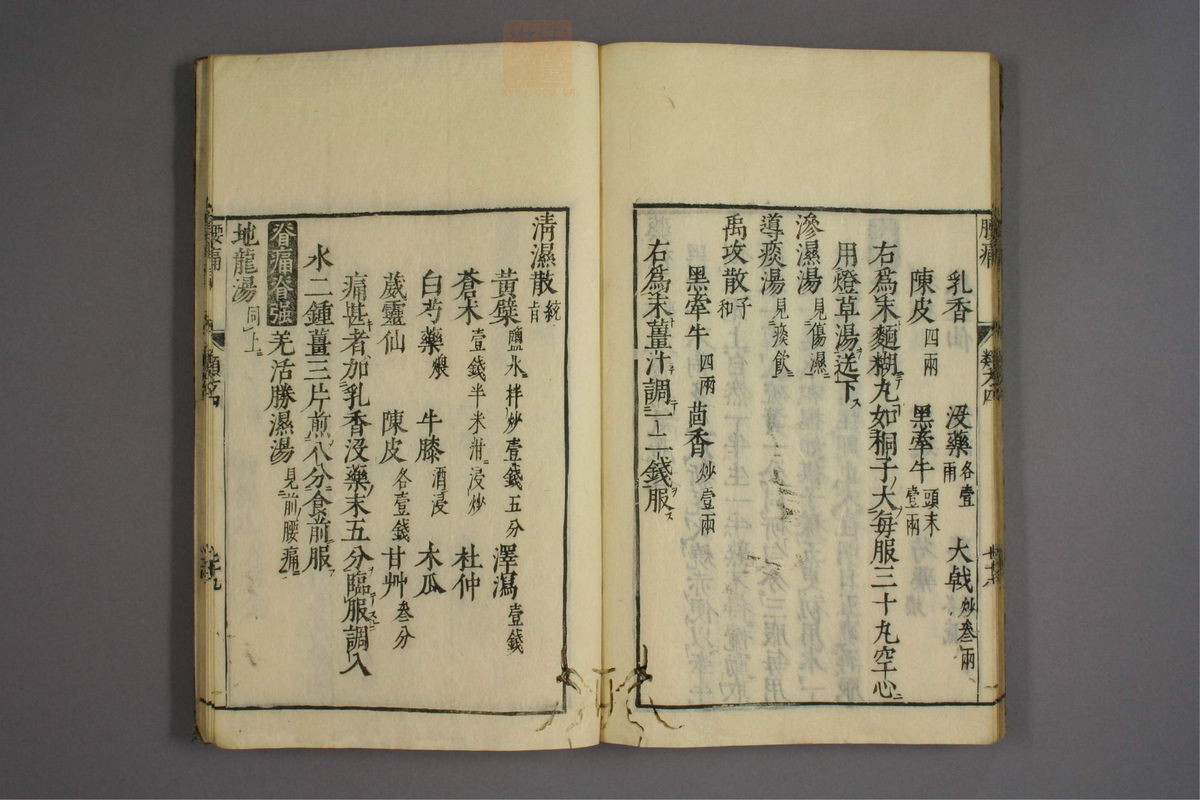 乳香 没藥各壹兩 大戟炒叁兩
陳皮四兩 黑牽牛頭末壹兩
右爲末麵糊丸如梧子大每服三十丸空心
用燈草湯送下ス
滲濕湯見傷濕ニ
導痰湯見痰飲ニ
禹攻散子和
黑牽牛四兩 茴香炒壹兩
右爲末薑汁調一二錢服ス
清濕散統旨
黃蘗鹽水拌炒壹錢五分 澤瀉壹錢
蒼朮壹錢半米泔浸炒 杜仲
白芍藥煨 牛膝酒浸 木瓜
葳靈仙 陳皮各壹錢 甘艸叁分
痛甚者加乳香没藥末五分臨服調入
水二鍾薑三片煎八分食前服
脊痛脊強 羌活勝濕湯見前腰痛
地龍湯同上
腰痛